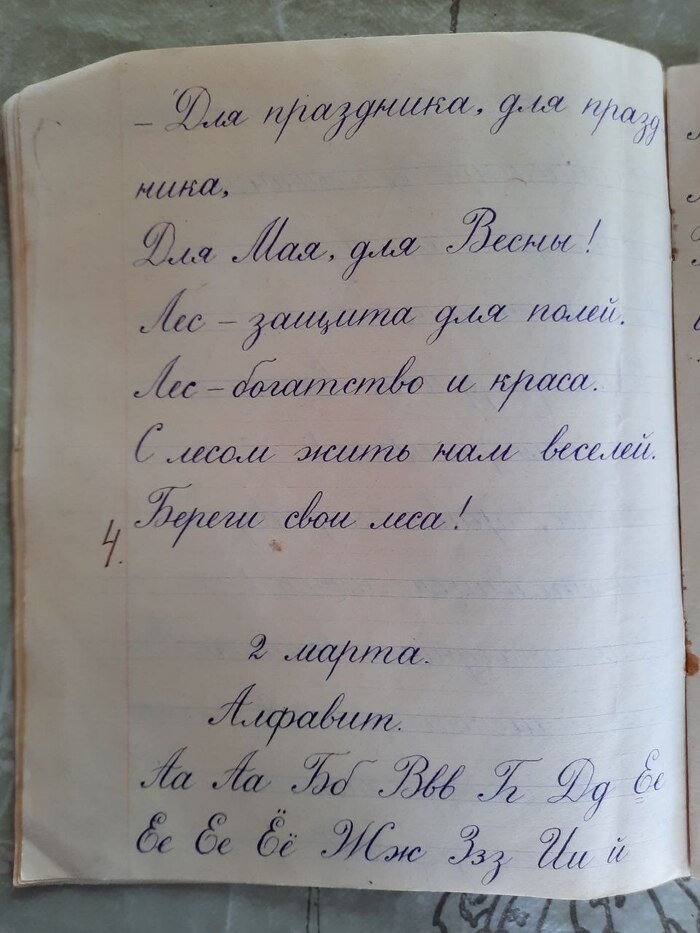 – Для праздника, для празд
ника,
Для Мая, для Весны!
Лес – защита для полей.
Лес – богатство и краса.
С лесом жить нам веселей.
Береги свои леса!
4.
2 марта.
Алфавит.
Аа Аа Бб Ввв Гг Дд Ее
Ее Ее Ёё Жж Ззз Ии й